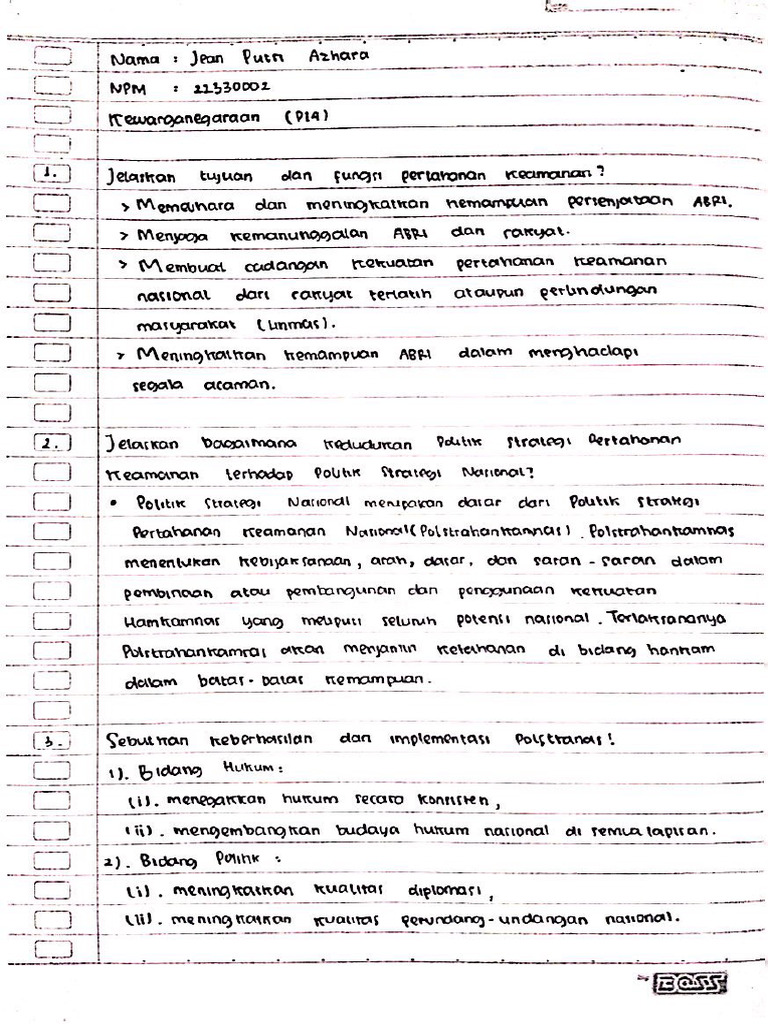 Nama : Jean Putri Azhara
NPM : 22330002
Kewarganegaraan (P14)
1. Jelaskan tujuan dan fungsi pertahanan keamanan?
> Memelihara dan meningkatkan kemampuan persenjataan ABRI.
> Menjaga kemanunggalan ABRI dan rakyat.
> Membuat cadangan kekuatan pertahanan keamanan
nasional dari rakyat terlatih ataupun perlindungan
masyarakat (Linmas).
> Meningkatkan kemampuan ABRI dalam menghadapi
segala acaman.
2. Jelaskan bagaimana kedudukan Politik Strategi Pertahanan
Keamanan terhadap Politik Strategi Nasional?
• Politik Strategi Nasional merupakan dasar dari Politik Strategi
Pertahanan Keamanan Nasional (Polstrahankamnas). Polstrahankamnas
menentukan kebijaksanaan, arah, dasar, dan saran-saran dalam
pembinaan atau pembangunan dan penggunaan kekuatan
Hamkamnas yang meliputi seluruh potensi nasional. Terlaksananya
Polstrahankamnas akan menjamin ketahanan di bidang hankam
dalam batas-batas kemampuan.
3. Sebutkan keberhasilan dan implementasi Polstranas!
1). Bidang Hukum :
(i). menegakkan hukum secara konsisten,
(ii). mengembangkan budaya hukum nasional di semua lapisan.
2). Bidang Politik :
(i). meningkatkan kualitas diplomasi,
(ii). meningkatkan kualitas perundang-undangan nasional.
BOSS